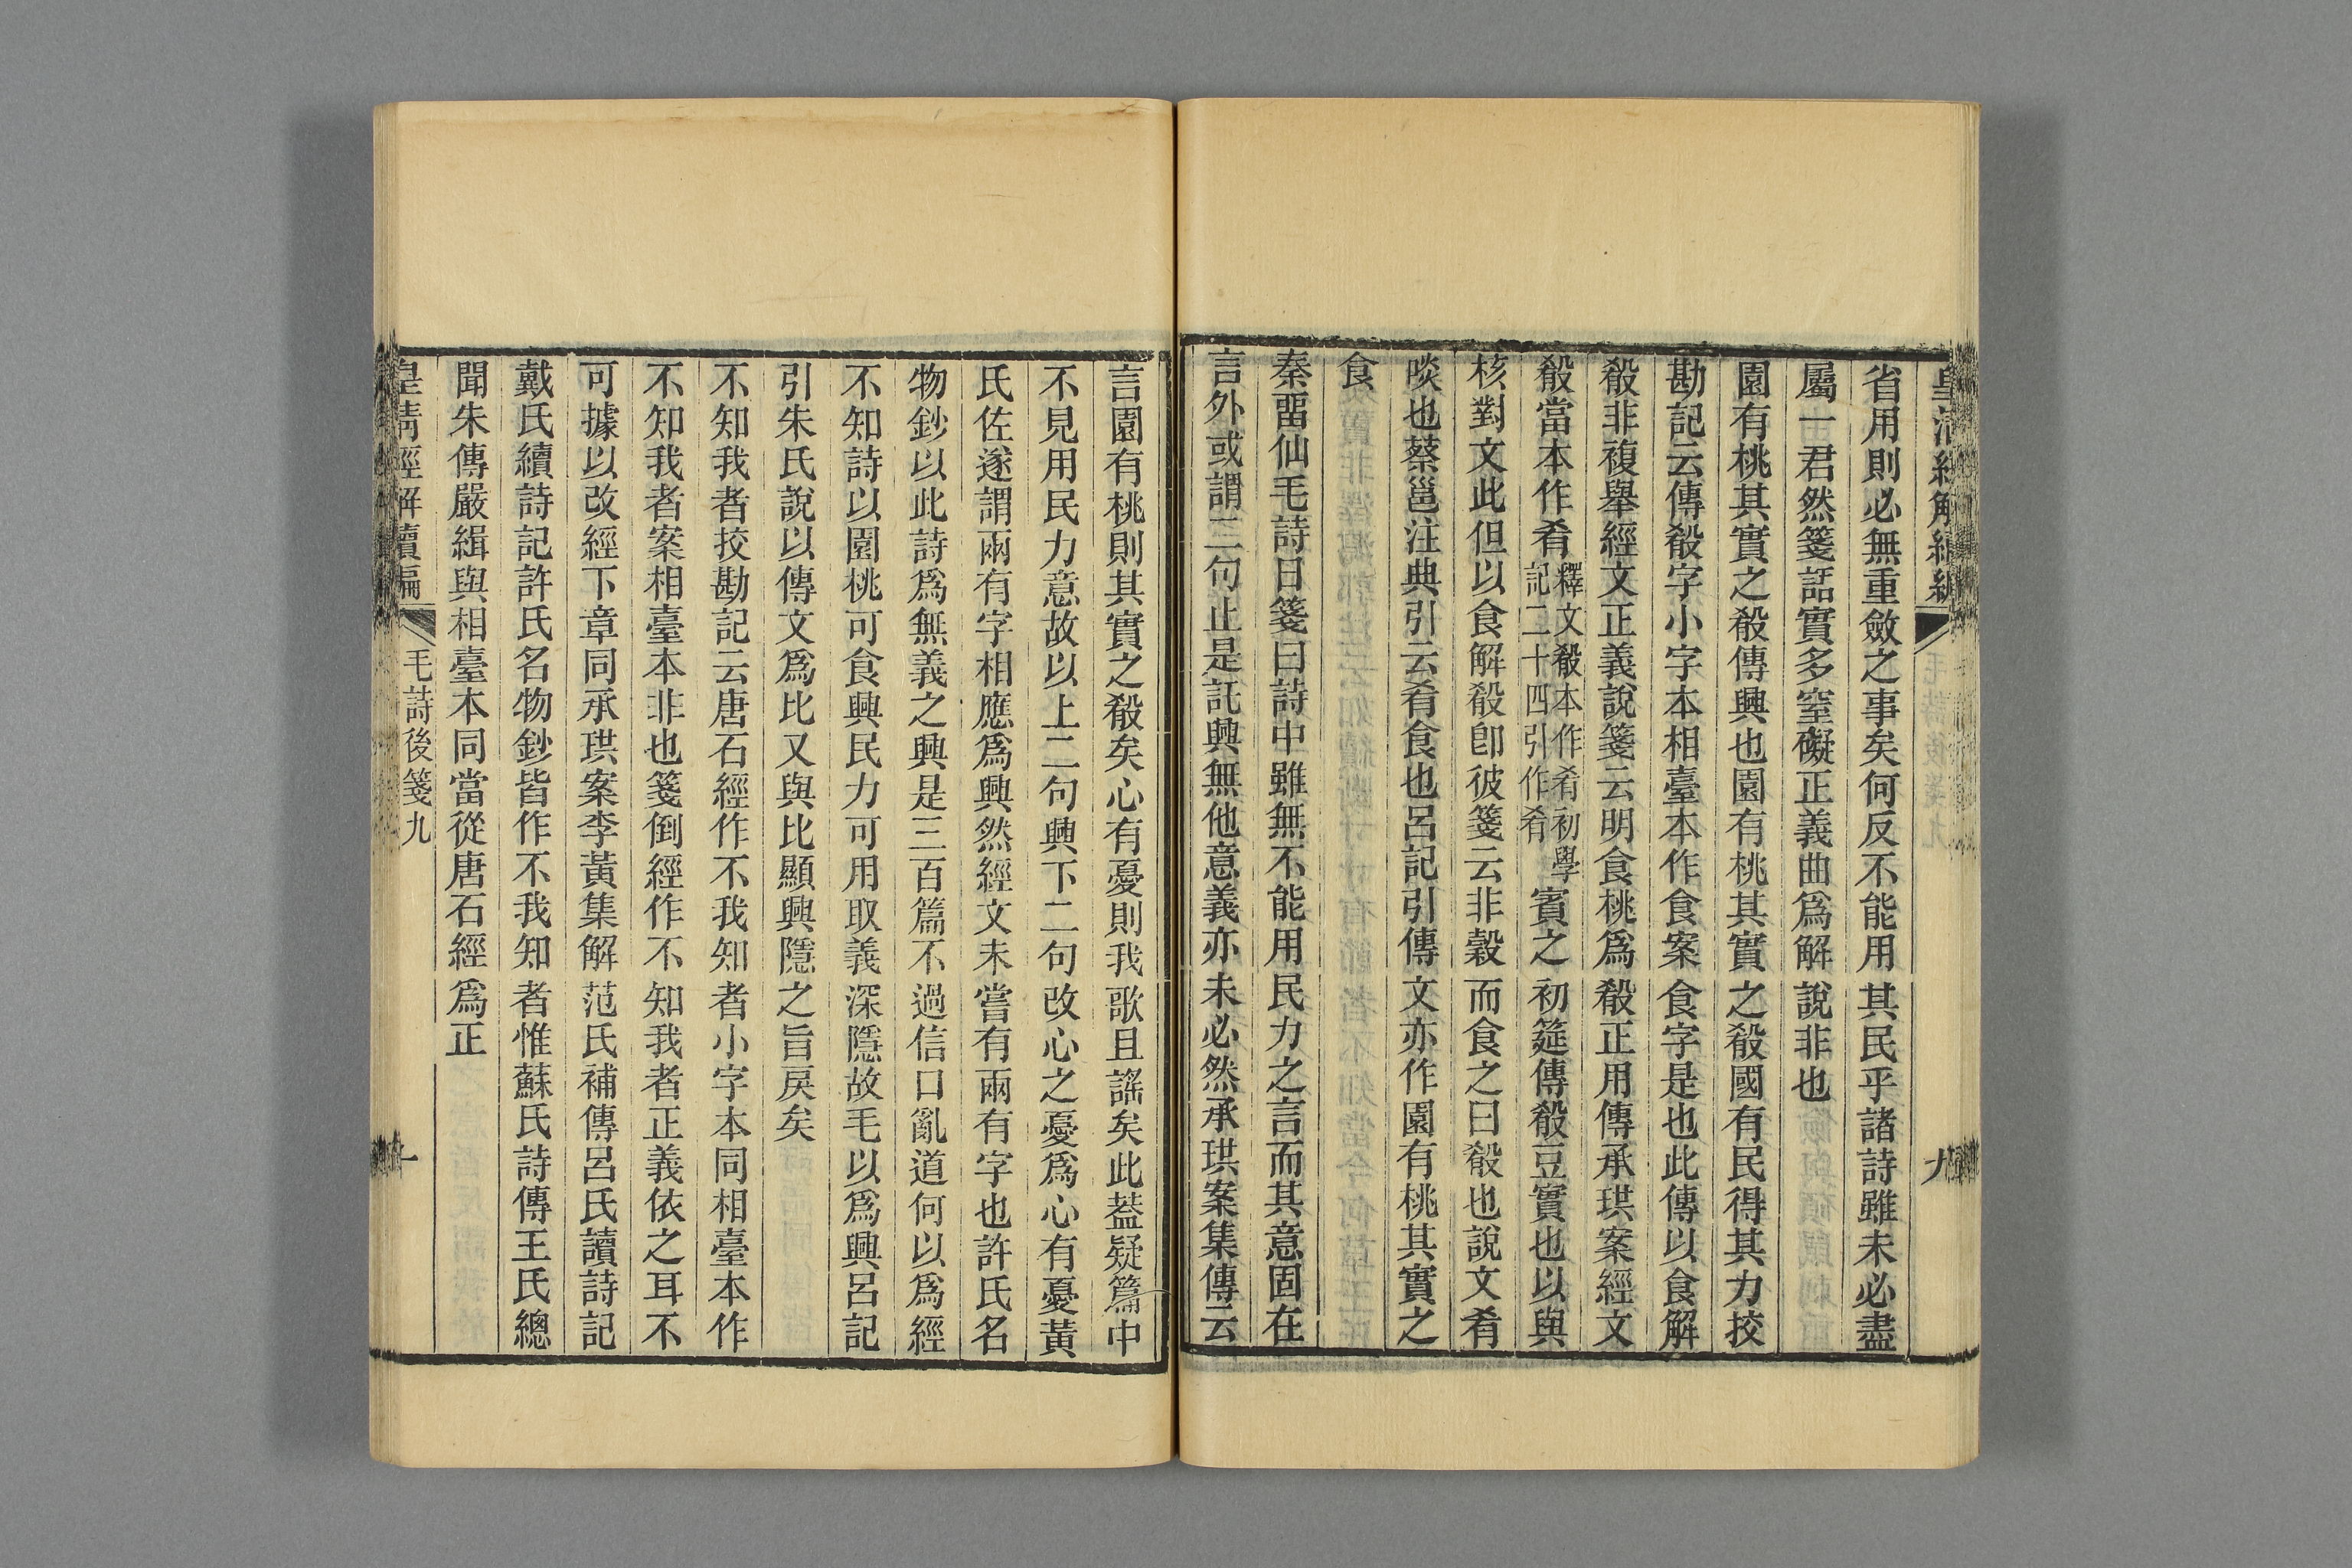 皇清經解續編
九
省用則必無重斂之事矣何反不能用其民乎諸詩雖未必盡
屬一君然箋話實多窒礙正義曲爲解說非也
園有桃其實之殽傳興也園有桃其實之殽國有民得其力挍
勘記云傳殽字小字本相臺本作食案食字是也此傳以食解
殽非複舉經文正義說箋云明食桃爲殽正用傳承珙案經文
殽當本作肴釋文殽本作肴初學記二十四引作肴賓之初筵傳殽豆實也以與
核對文此但以食解殽卽彼箋云非穀而食之曰殽也說文肴
啖也蔡邕注典引云肴食也呂記引傳文亦作園有桃其實之
食
秦畱仙毛詩日箋曰詩中雖無不能用民力之言而其意固在
言外或謂三句止是託興無他意義亦未必然承珙案集傳云
言園有桃則其實之殽矣心有憂則我歌且謠矣此葢疑篇中
不見用民力意故以上二句興下二句改心之憂爲心有憂黃
氏佐遂謂兩有字相應爲興然經文未嘗有兩有字也許氏名
物鈔以此詩爲無義之興是三百篇不過信口亂道何以爲經
不知詩以園桃可食興民力可用取義深隱故毛以爲興呂記
引朱氏說以傳文爲比又與比顯興隱之旨戾矣
不知我者挍勘記云唐石經作不我知者小字本同相臺本作
不知我者案相臺本非也箋倒經作不知我者正義依之耳不
可據以改經下章同承珙案李黃集解范氏補傳呂氏讀詩記
戴氏續詩記許氏名物鈔皆作不我知者惟蘇氏詩傳王氏總
聞朱傳嚴緝與相臺本同當從唐石經爲正
皇清經解續編
毛詩後箋九